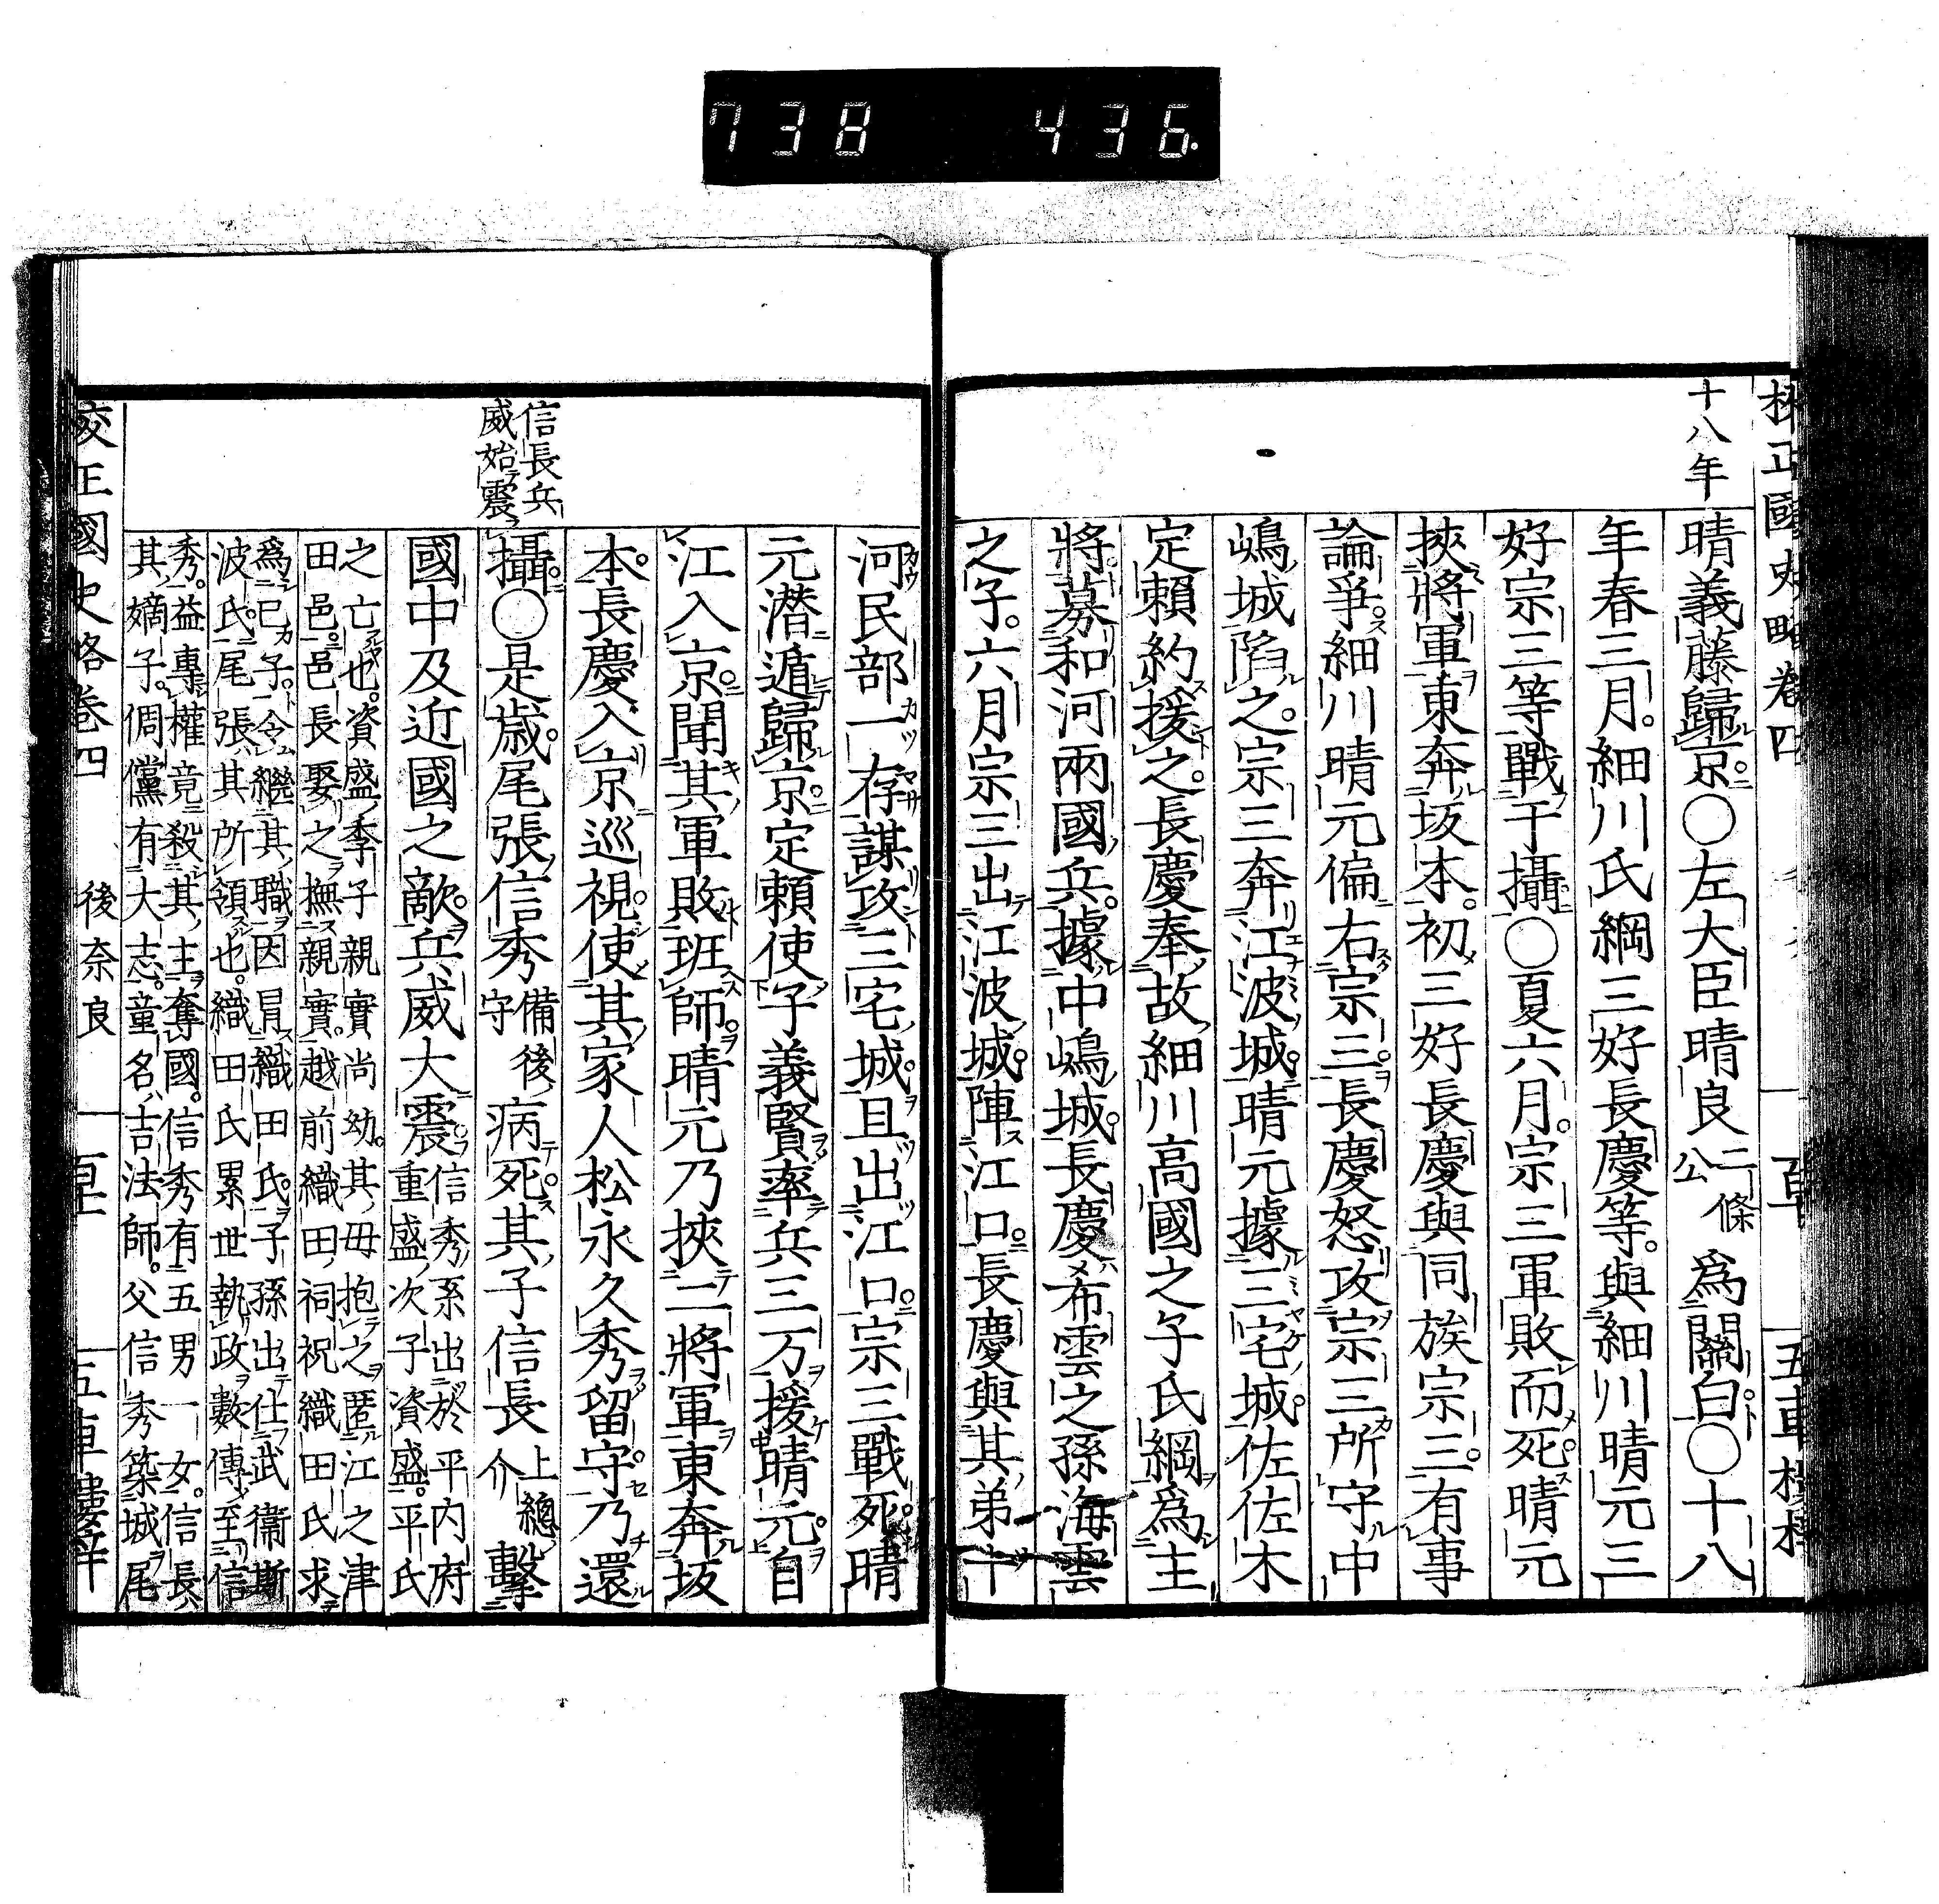 738 436.
校正國史略卷四
五車樓梓
十八年
晴義藤歸京○左大臣晴良二條公爲關白○十八
年春三月細川氏綱三好長慶等與細川晴元三
好宗三等戰于攝○夏六月宗三軍敗而死晴元
挾將軍東奔坂本初三好長慶與同族宗三有事
論爭細川晴元偏右宗三長慶怒攻宗三所守中
嶋城陷之宗三奔江波城晴元據三宅城佐佐木
定賴約援之長慶奉故細川高國之子氏綱爲主
將募和河兩國兵據中嶋城長慶希雲之孫海雲
之子六月宗三出江波城陣江口長慶與其弟十
河民部一存謀攻三宅城且出江口宗三戰死晴
元潜遁歸京定賴使子義賢率兵三万援晴元自
江入京聞其軍敗班師晴元乃挾二將軍東奔坂
本長慶入京巡視使其家人松永久秀留守乃還
信長兵
威始震
攝○是歲尾張信秀備後守病死其子信長上總介擊
國中及近國之敵兵威大震信秀系出於平內府
重盛次子資盛平氏
之亡也資盛季子親實尚幼其母抱之匿江之津
田邑邑長娶之撫親實越前織田祠祝織田氏求
爲己子令繼其職因冒織田氏子孫出仕武衞斯
波氏尾張其所領也織田氏累世執政數傳至信
秀益專權竟殺其主奪國信秀有五男一女信長
其嫡子倜儻有大志童名吉法師父信秀築城尾
校正國史略卷四
後奈良
五車樓梓